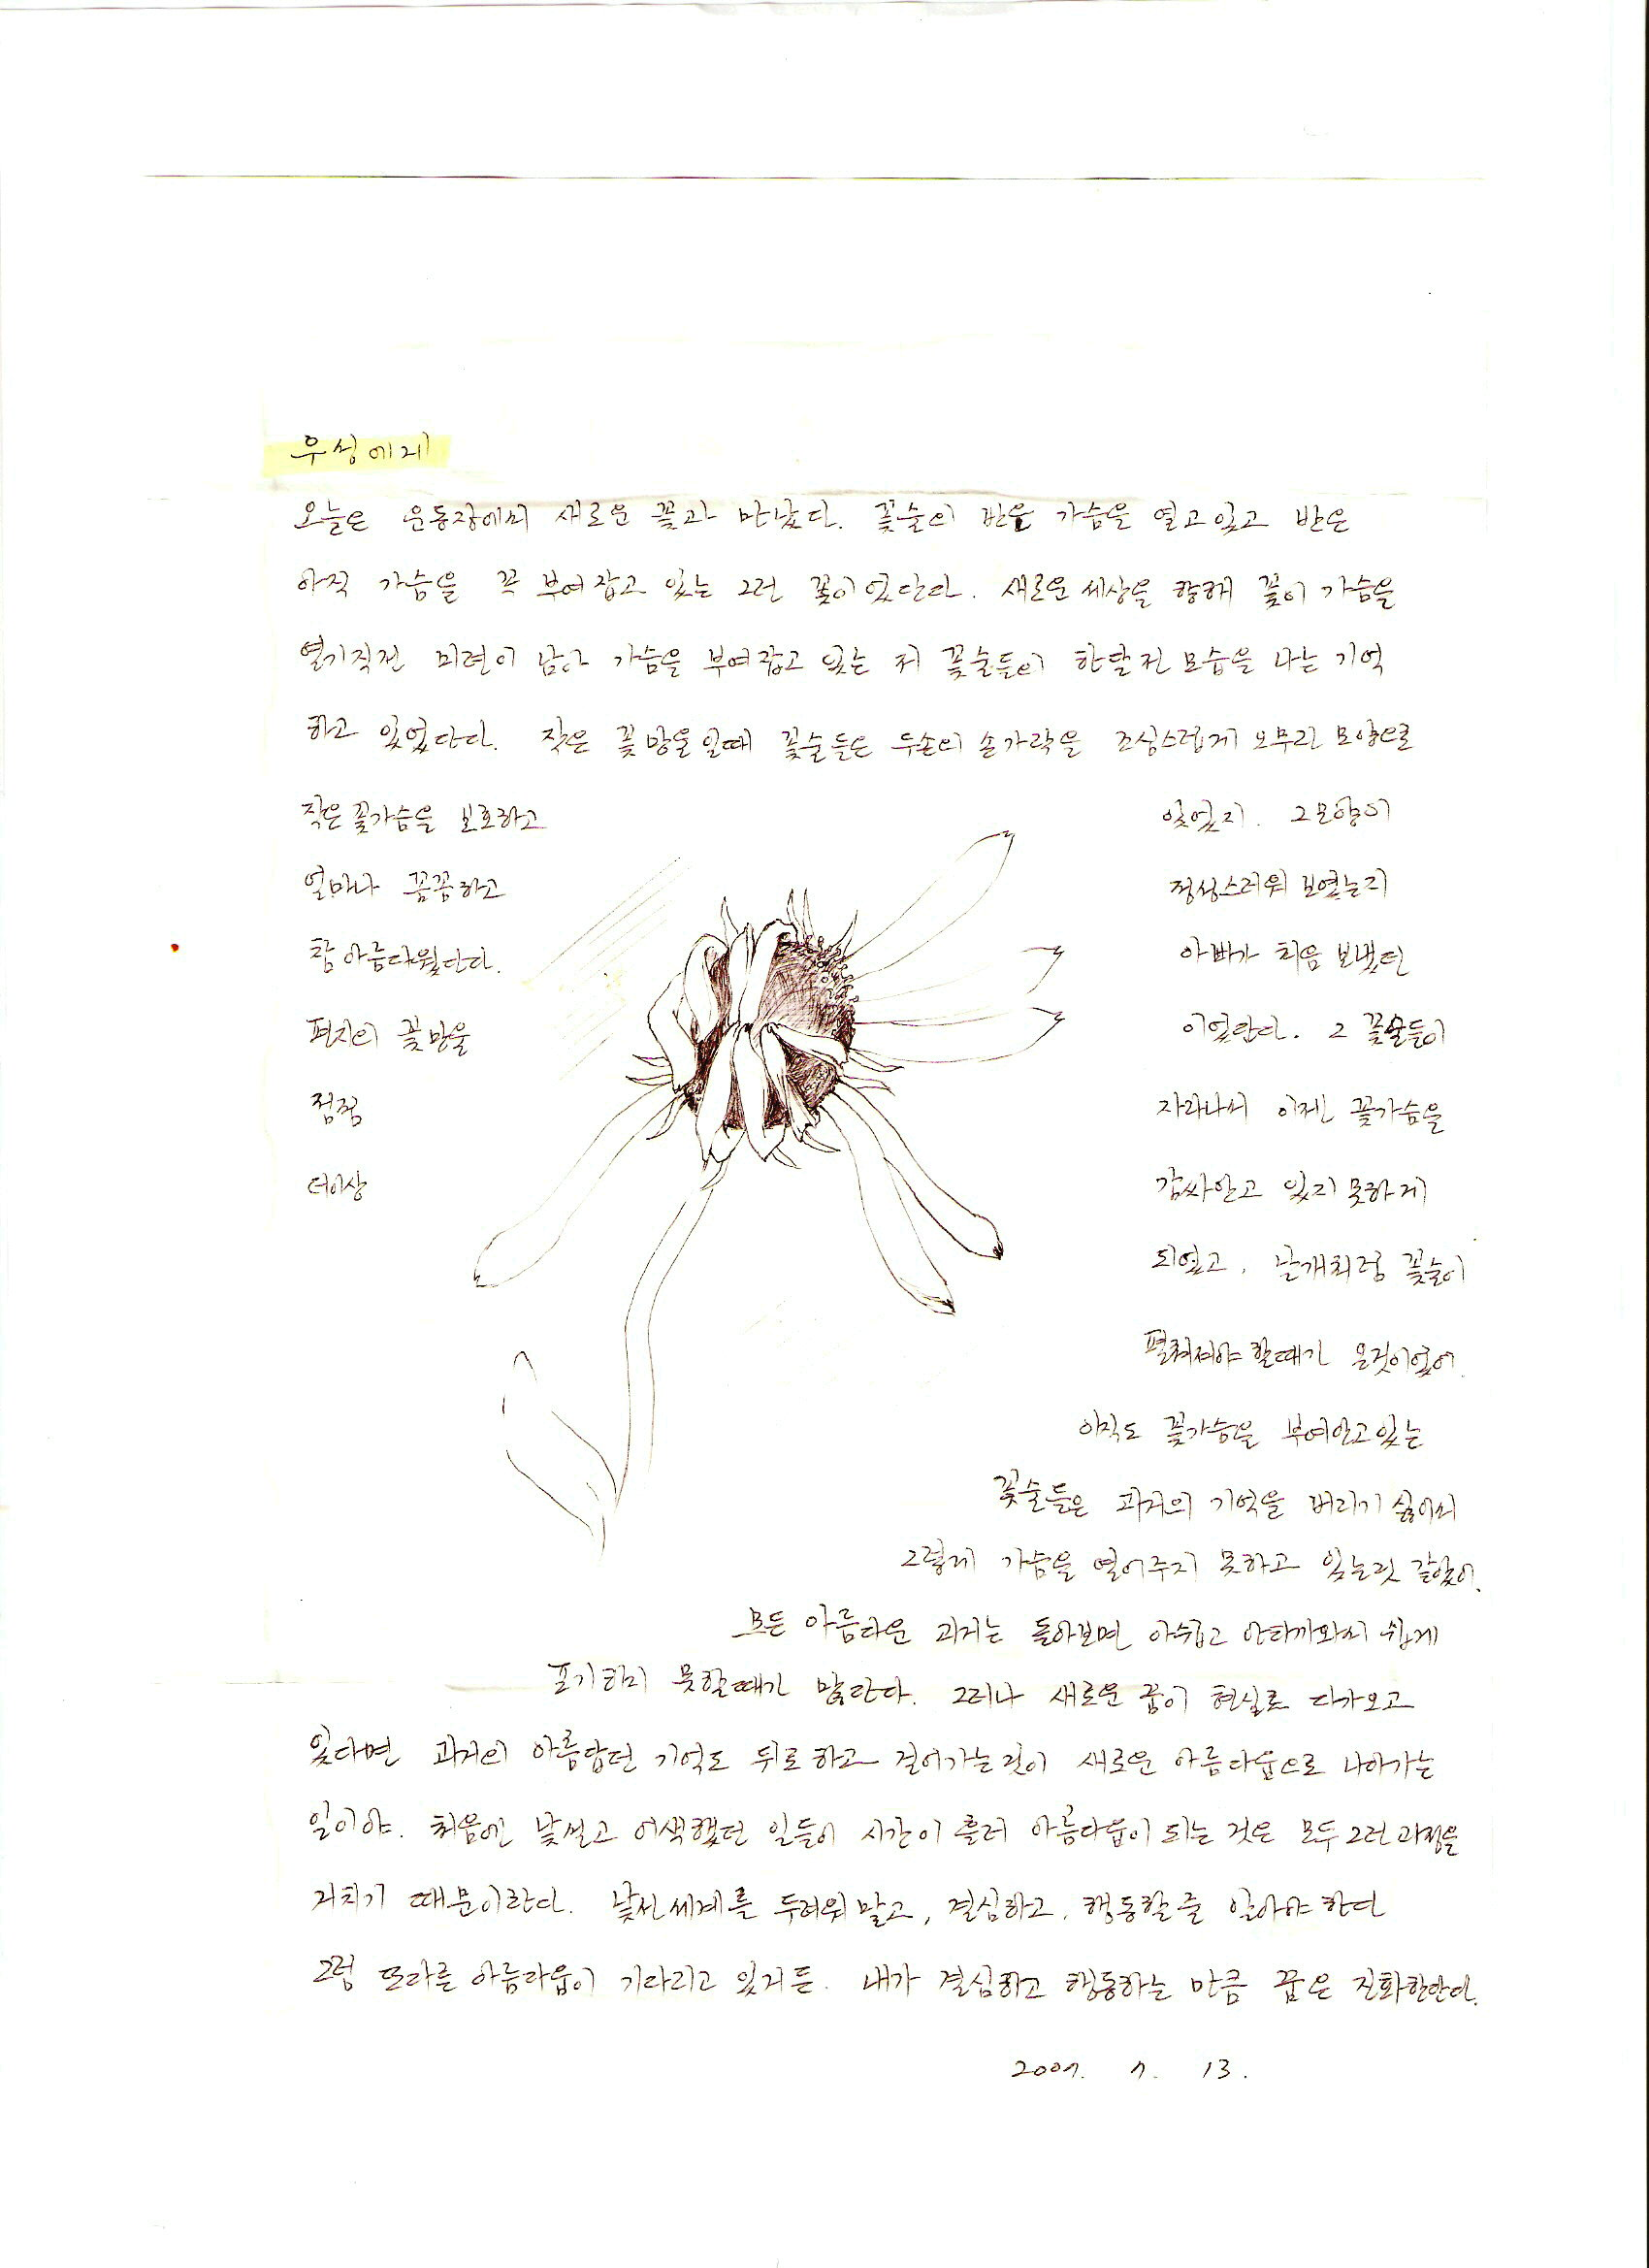 우성에게
오늘은 운동장에서 새로운 꽃과 만났다. 꽃술의 반은 가슴을 열고 있고 반은
아직 가슴을 꼭 부여잡고 있는 그런 꽃이었단다. 새로운 세상을 향해 꽃이 가슴을
열기직전 미련이 남아 가슴을 부여잡고 있는 저 꽃술들의 한달전 모습을 나는 기억
하고 있었단다. 작은 꽃망울일때 꽃술들은 두손의 손가락을 조심스럽게 오무린 모양으로
작은 꽃가슴을 보호하고 있었지. 그모양이
얼마나 꼼꼼하고 정성스러워 보였는지
참 아름다웠단다. 아빠가 처음 보냈던
편지의 꽃망울 이었단다. 그 꽃술들이
점점 자라나서 이젠 꽃가슴을
더이상 감싸안고 있지 못하게
되었고, 날개처럼 꽃술이
펼쳐져야 할때가 온것이었어.
아직도 꽃가슴을 부여안고있는
꽃술들은 과거의 기억을 버리기 싫어서
그렇게 가슴을 열어주지 못하고 있는것 같았어.
모든 아름다운 과거는 돌아보면 아쉽고 안타까와서 쉽게
포기하지 못할때가 많단다. 그러나 새로운 꿈이 현실로 다가오고
있다면 과거의 아름답던 기억도 뒤로하고 걸어가는것이 새로운 아름다움으로 나아가는
일이야. 처음엔 낯설고 어색했던 일들이 시간이 흘러 아름다움이 되는 것은 모두 그런 과정을
거치기 때문이란다. 낯선세계를 두려워말고, 결심하고, 행동할줄 알아야 한다
그럼 또다른 아름다움이 기다리고 있거든. 내가 결심하고 행동하는 만큼 꿈은 진화한단다.
2007. 7. 13.